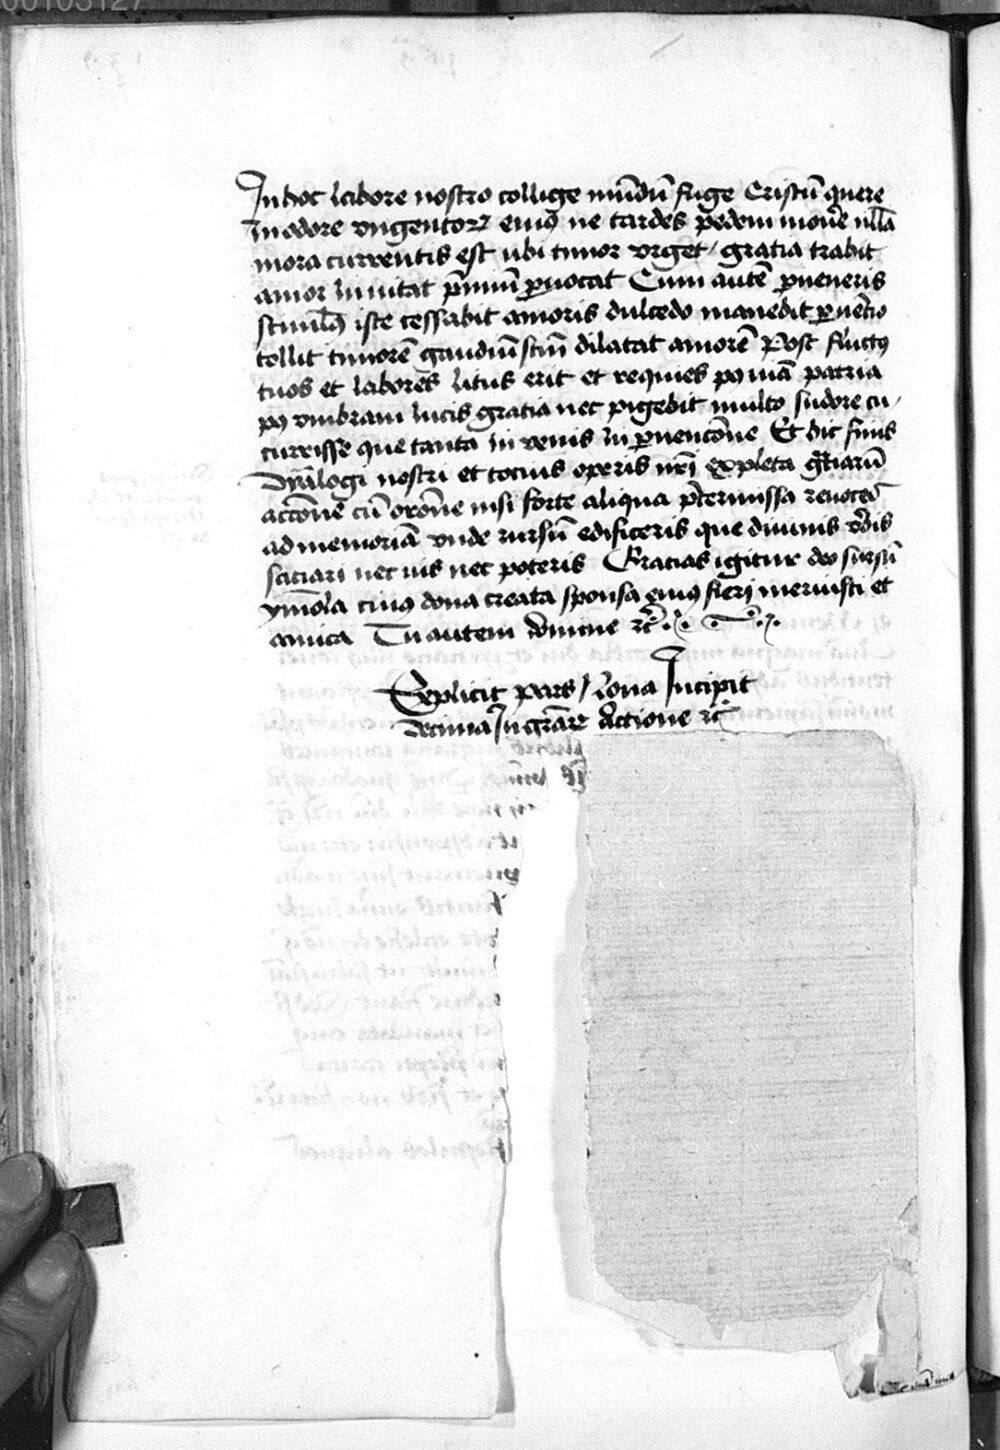 In hoc labore nostro collige mūdū fuge Cristū quere
In odore vngentoꝝ eius ne tardes pedem mouē nlla
mora currentis est vbi timor vrget / gratia trahit
amor Inuitat p̄miū ꝓuocat Cum autē ꝑueneris
stimulꝰ iste cessabit amoris dulcedo manebit ꝑuētio
tollit timorē gaudiū scm̄ dilatat amorē Post fluctꝰ
tuos et labores litus erit et requies pꝰ viā patria
pꝰ vmbram lucis gratia nec pigebit multo sudore cu /
currisse que tanta In venis In ꝑuencōne Et hic finis
Dyālogi nostri et tocius operis nr̄i expleta gr̄tiarū
accōne cū orōne nisi forte aliqua p̄termissa reuoces
ad memoriā vnde rursū edificeris que diuinis v̄bis
saciari nec vis nec poteris Gracias igitur deo sursū
cuiꝰ dona creata sponsa eiuꝰ fieri meruisti et
amica Tu autem domine ꝛc̄
Explicit pars Nona Incipit
decima In grār̄ actione ꝛc̄